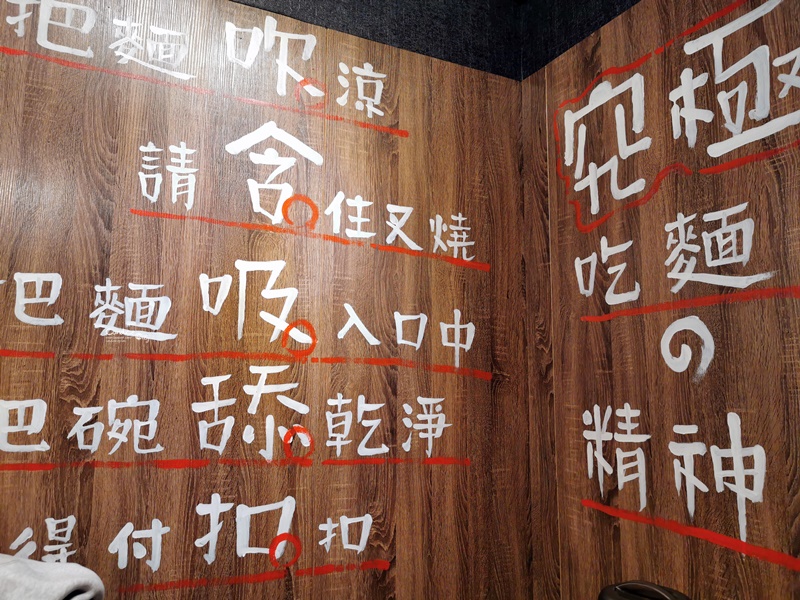 把麵吹涼
請含住叉燒
把麵吸入口中
把碗舔乾淨
得付扣扣
究極
吃麵
の
精神